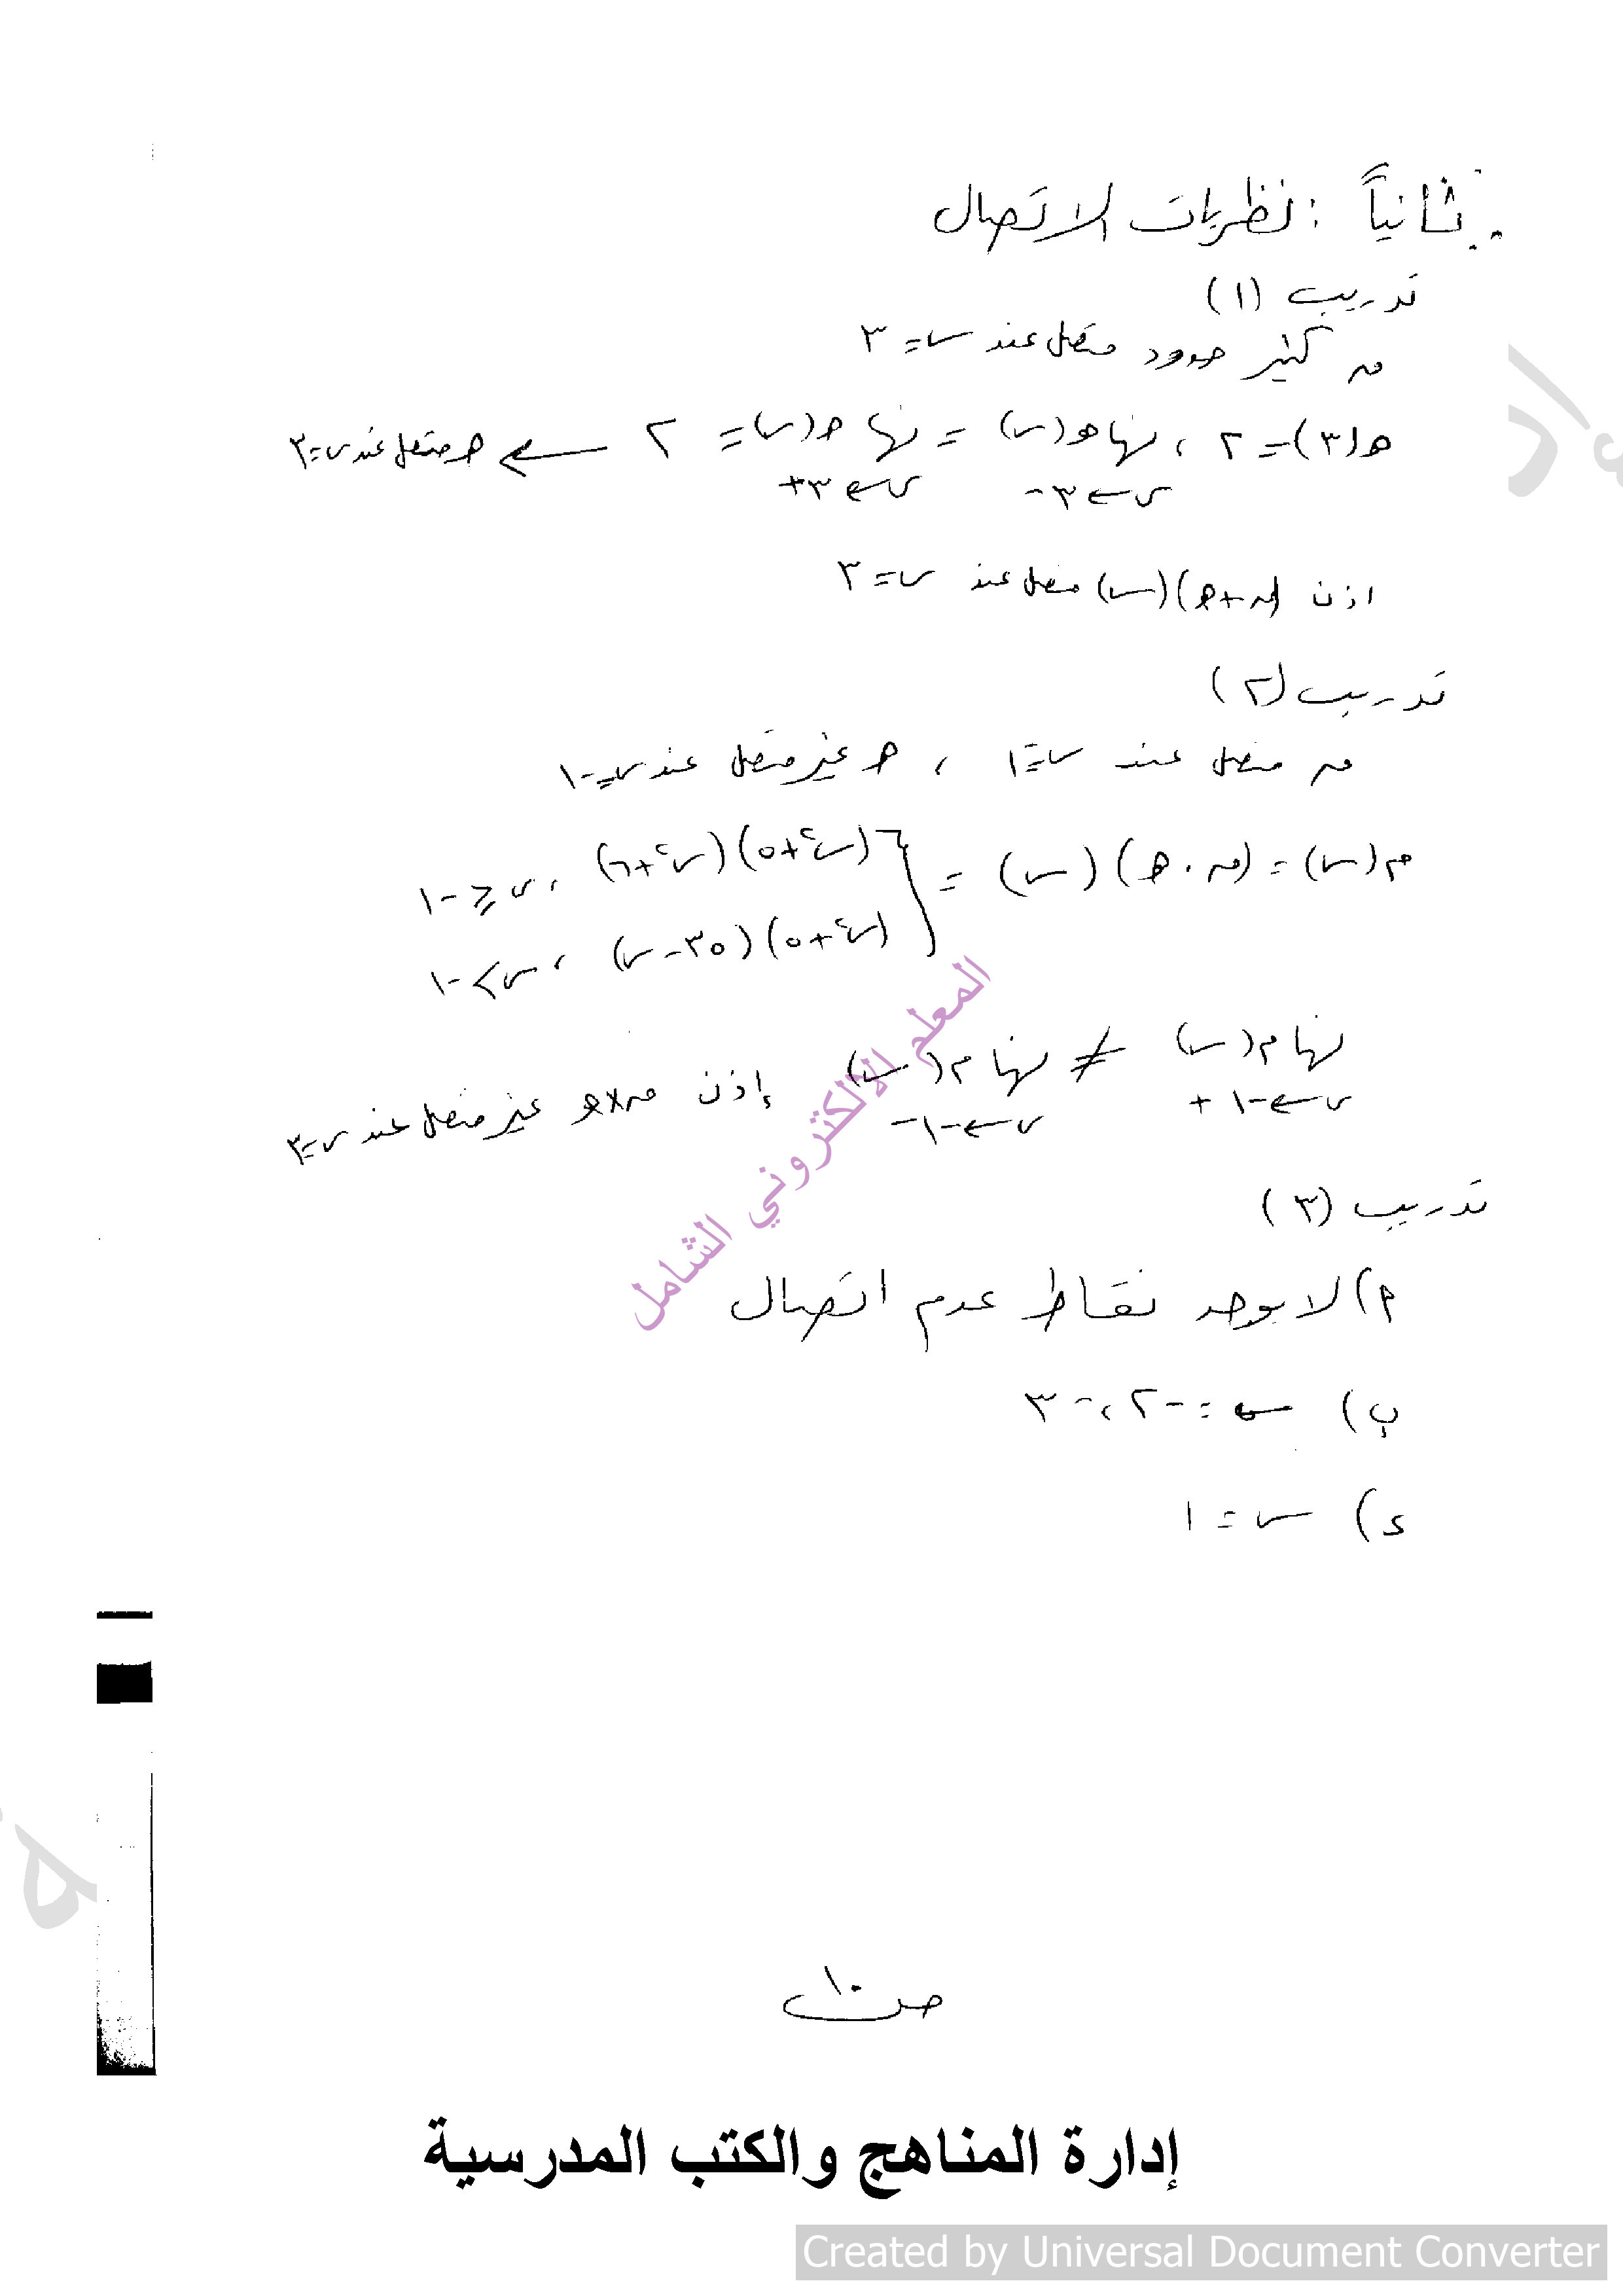 ثانياً : نظريات الاتصال
تدريب (١)
ق كثير حدود متصل عند س = ٣
هـ(٣) = ٢ ، نهـا هـ(س) = نهـا هـ(س) = ٢ ← هـ متصل عند س = ٣
س ← ٣- س ← ٣+
اذن (ق + هـ)(س) متصل عند س = ٣
تدريب (٢)
ق متصل عند س = ١ ، هـ غير متصل عند س = -١
م(س) = (ق . هـ)(س) = { (س٢ + ٥)(س٢ + ٦) ، س ≥ -١
(س٢ + ٥)(٣٥ - س) ، س > -١
نهـا م(س) ≠ نهـا م(س) إذن ق×هـ غير متصل عند س = ٣
س ← -١ + س ← -١ -
تدريب (٣)
م) لا يوجد نقاط عدم اتصال
ب) س = -٢ ، -٣
ء) س = ١
المعلم الالكتروني الشامل
ص ١٠
إدارة المناهج والكتب المدرسية
Created by Universal Document Converter